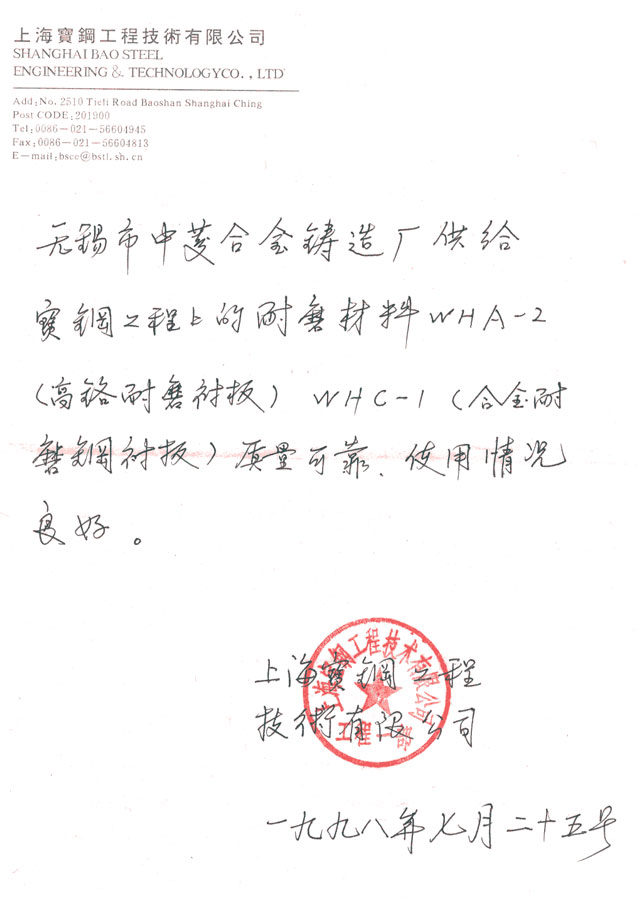 上海寶鋼工程技術有限公司
SHANGHAI BAO STEEL
ENGINEERING & TECHNOLOGYCO., LTD
Add:No. 2510 Tieli Road Baoshan Shanghai Ching
Post CODE:201900
Tel:0086－021－56604945
Fax:0086－021－56604813
E－mail:bsce@bstl.sh.cn
无锡市中菱合金铸造厂供给
寶鋼工程上的耐磨材料WHA-2
(高铬耐磨衬板) WHC-1 (合金耐
磨鋼衬板)质量可靠、使用情况
良好。
上海寶鋼工程
技術有限公司
上海宝鋼工程技术有限公司
一九九八年七月二十五号